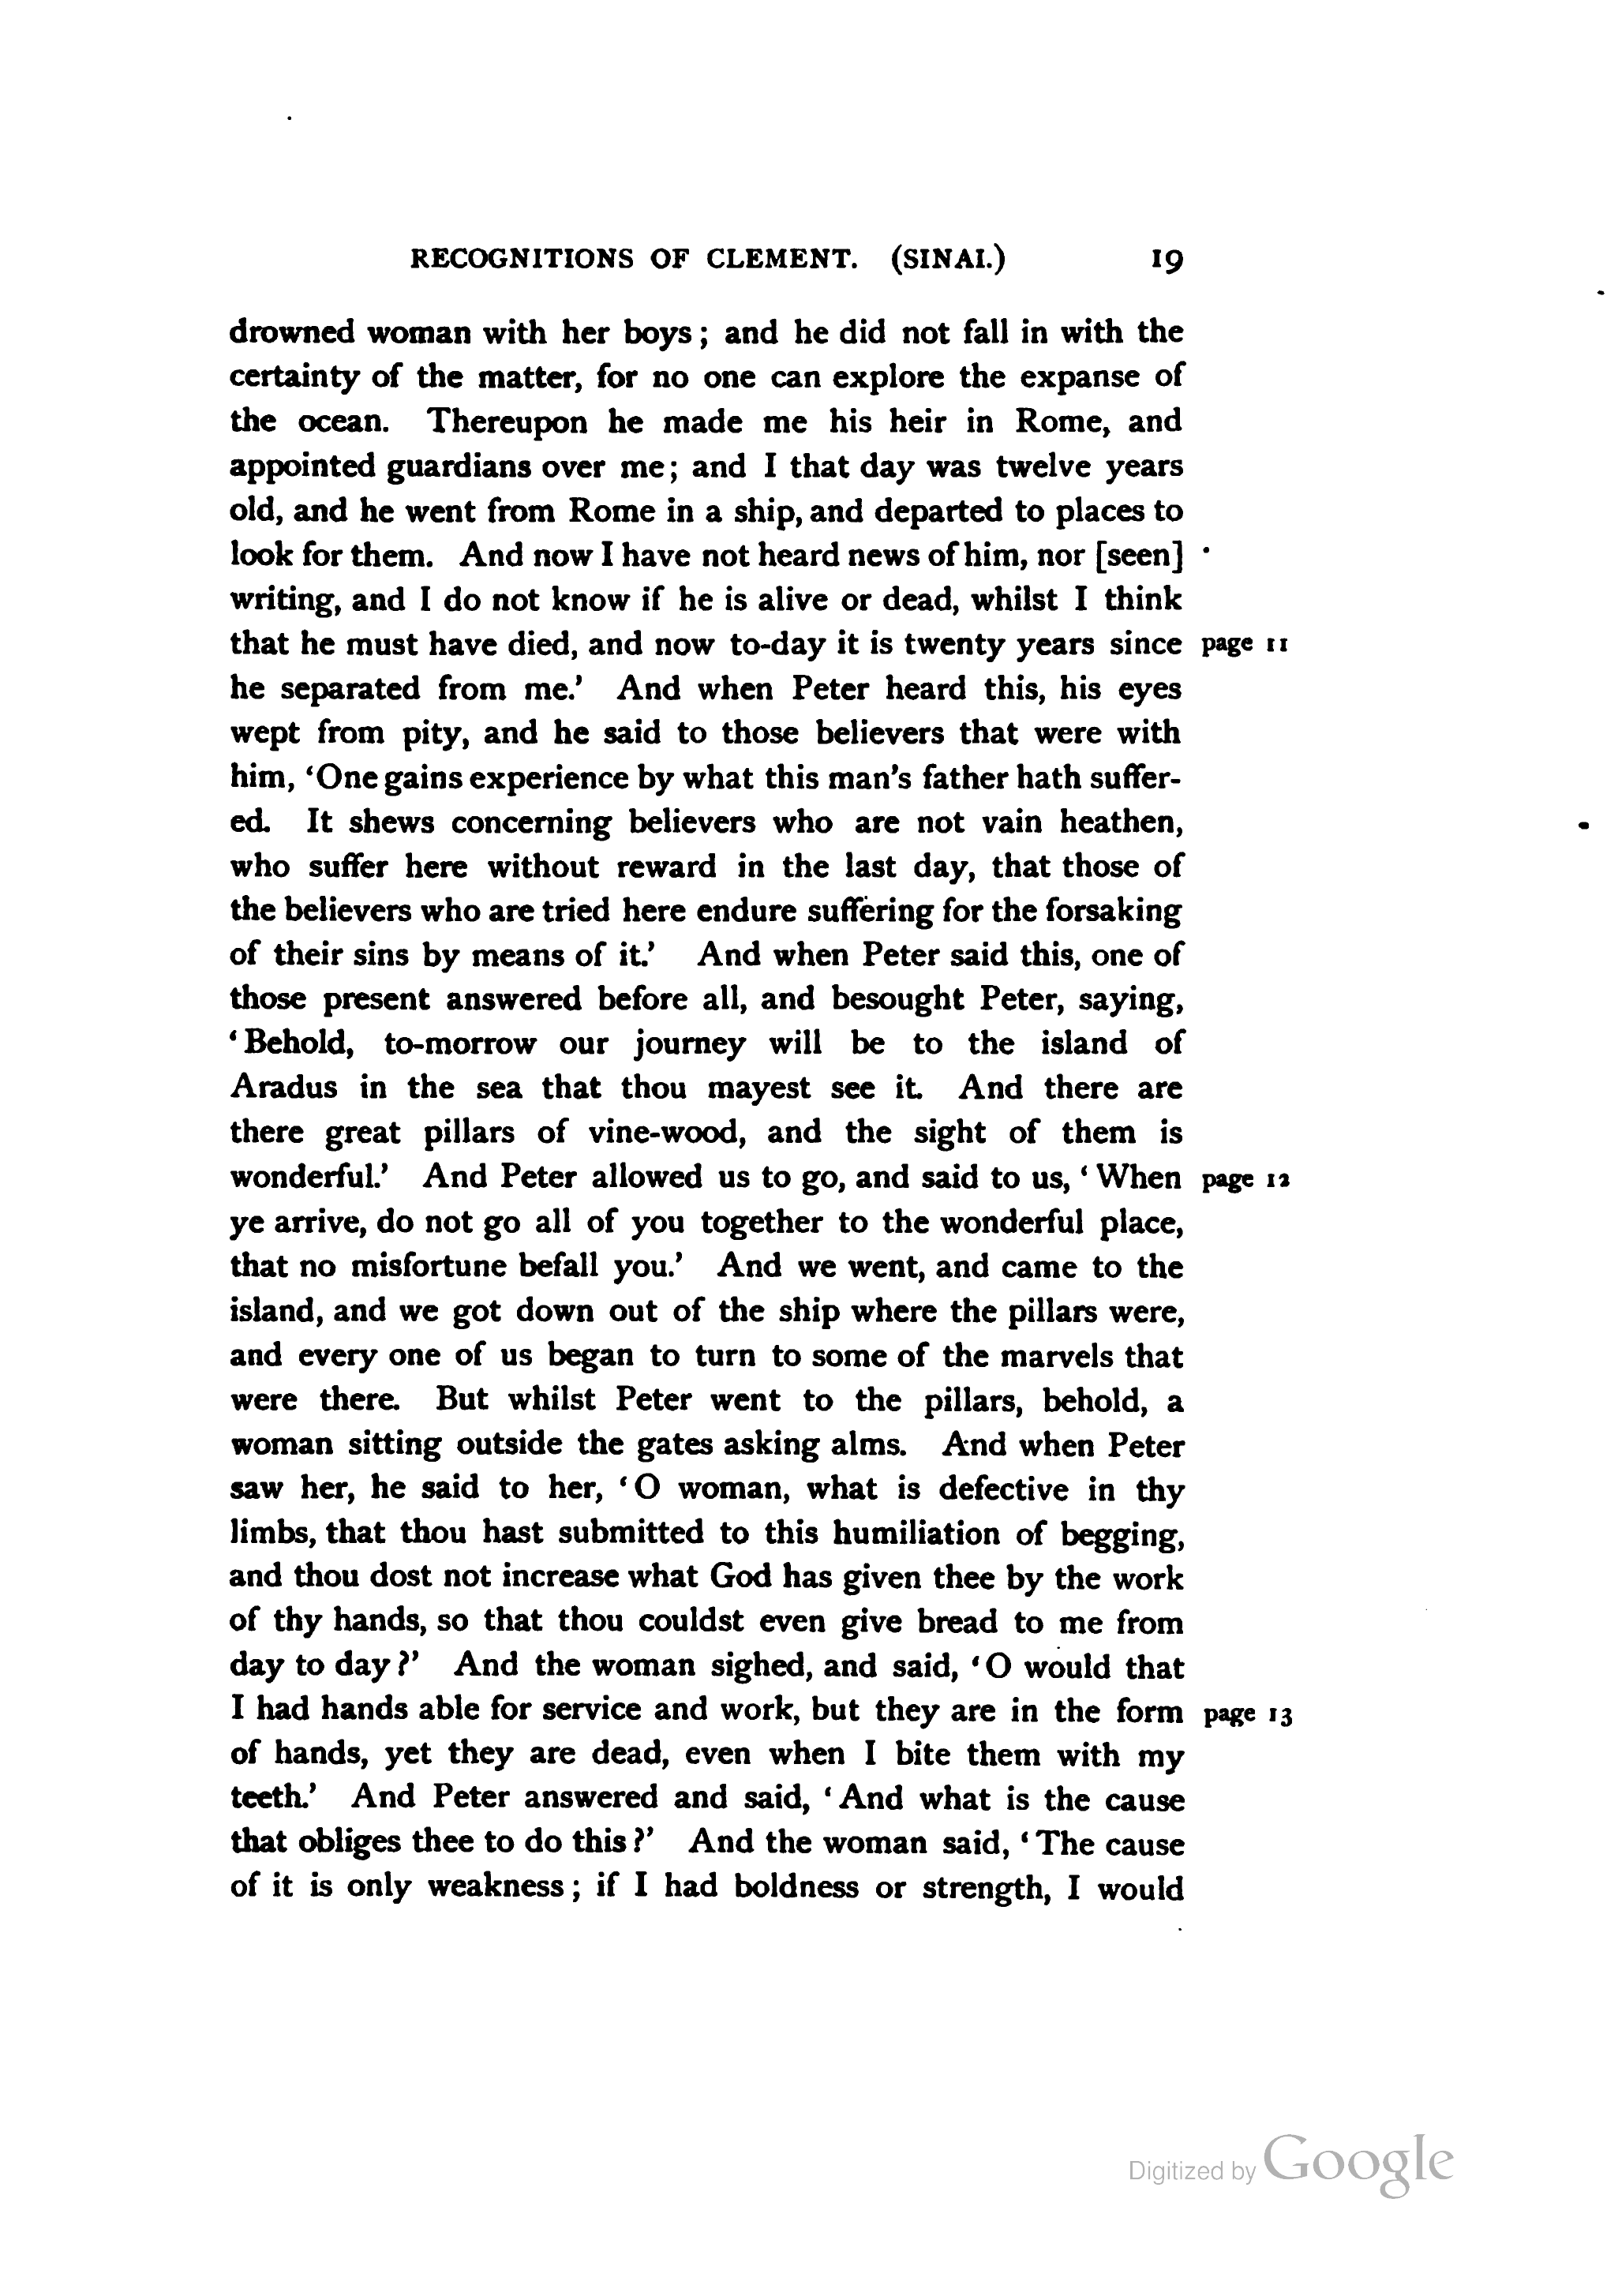 RECOGNITIONS OF CLEMENT. (SINAI.) 19
drowned woman with her boys; and he did not fall in with the
certainty of the matter, for no one can explore the expanse of
the ocean. Thereupon he made me his heir in Rome, and
appointed guardians over me; and I that day was twelve years
old, and he went from Rome in a ship, and departed to places to
look for them. And now I have not heard news of him, nor [seen]
writing, and I do not know if he is alive or dead, whilst I think
that he must have died, and now to-day it is twenty years since page 11
he separated from me.’ And when Peter heard this, his eyes
wept from pity, and he said to those believers that were with
him, ‘One gains experience by what this man’s father hath suffer-
ed. It shews concerning believers who are not vain heathen,
who suffer here without reward in the last day, that those of
the believers who are tried here endure suffering for the forsaking
of their sins by means of it.’ And when Peter said this, one of
those present answered before all, and besought Peter, saying,
‘Behold, to-morrow our journey will be to the island of
Aradus in the sea that thou mayest see it. And there are
there great pillars of vine-wood, and the sight of them is
wonderful.’ And Peter allowed us to go, and said to us, ‘When page 12
ye arrive, do not go all of you together to the wonderful place,
that no misfortune befall you.’ And we went, and came to the
island, and we got down out of the ship where the pillars were,
and every one of us began to turn to some of the marvels that
were there. But whilst Peter went to the pillars, behold, a
woman sitting outside the gates asking alms. And when Peter
saw her, he said to her, ‘O woman, what is defective in thy
limbs, that thou hast submitted to this humiliation of begging,
and thou dost not increase what God has given thee by the work
of thy hands, so that thou couldst even give bread to me from
day to day?’ And the woman sighed, and said, ‘O would that
I had hands able for service and work, but they are in the form page 13
of hands, yet they are dead, even when I bite them with my
teeth.’ And Peter answered and said, ‘And what is the cause
that obliges thee to do this?’ And the woman said, ‘The cause
of it is only weakness; if I had boldness or strength, I would
Digitized by Google